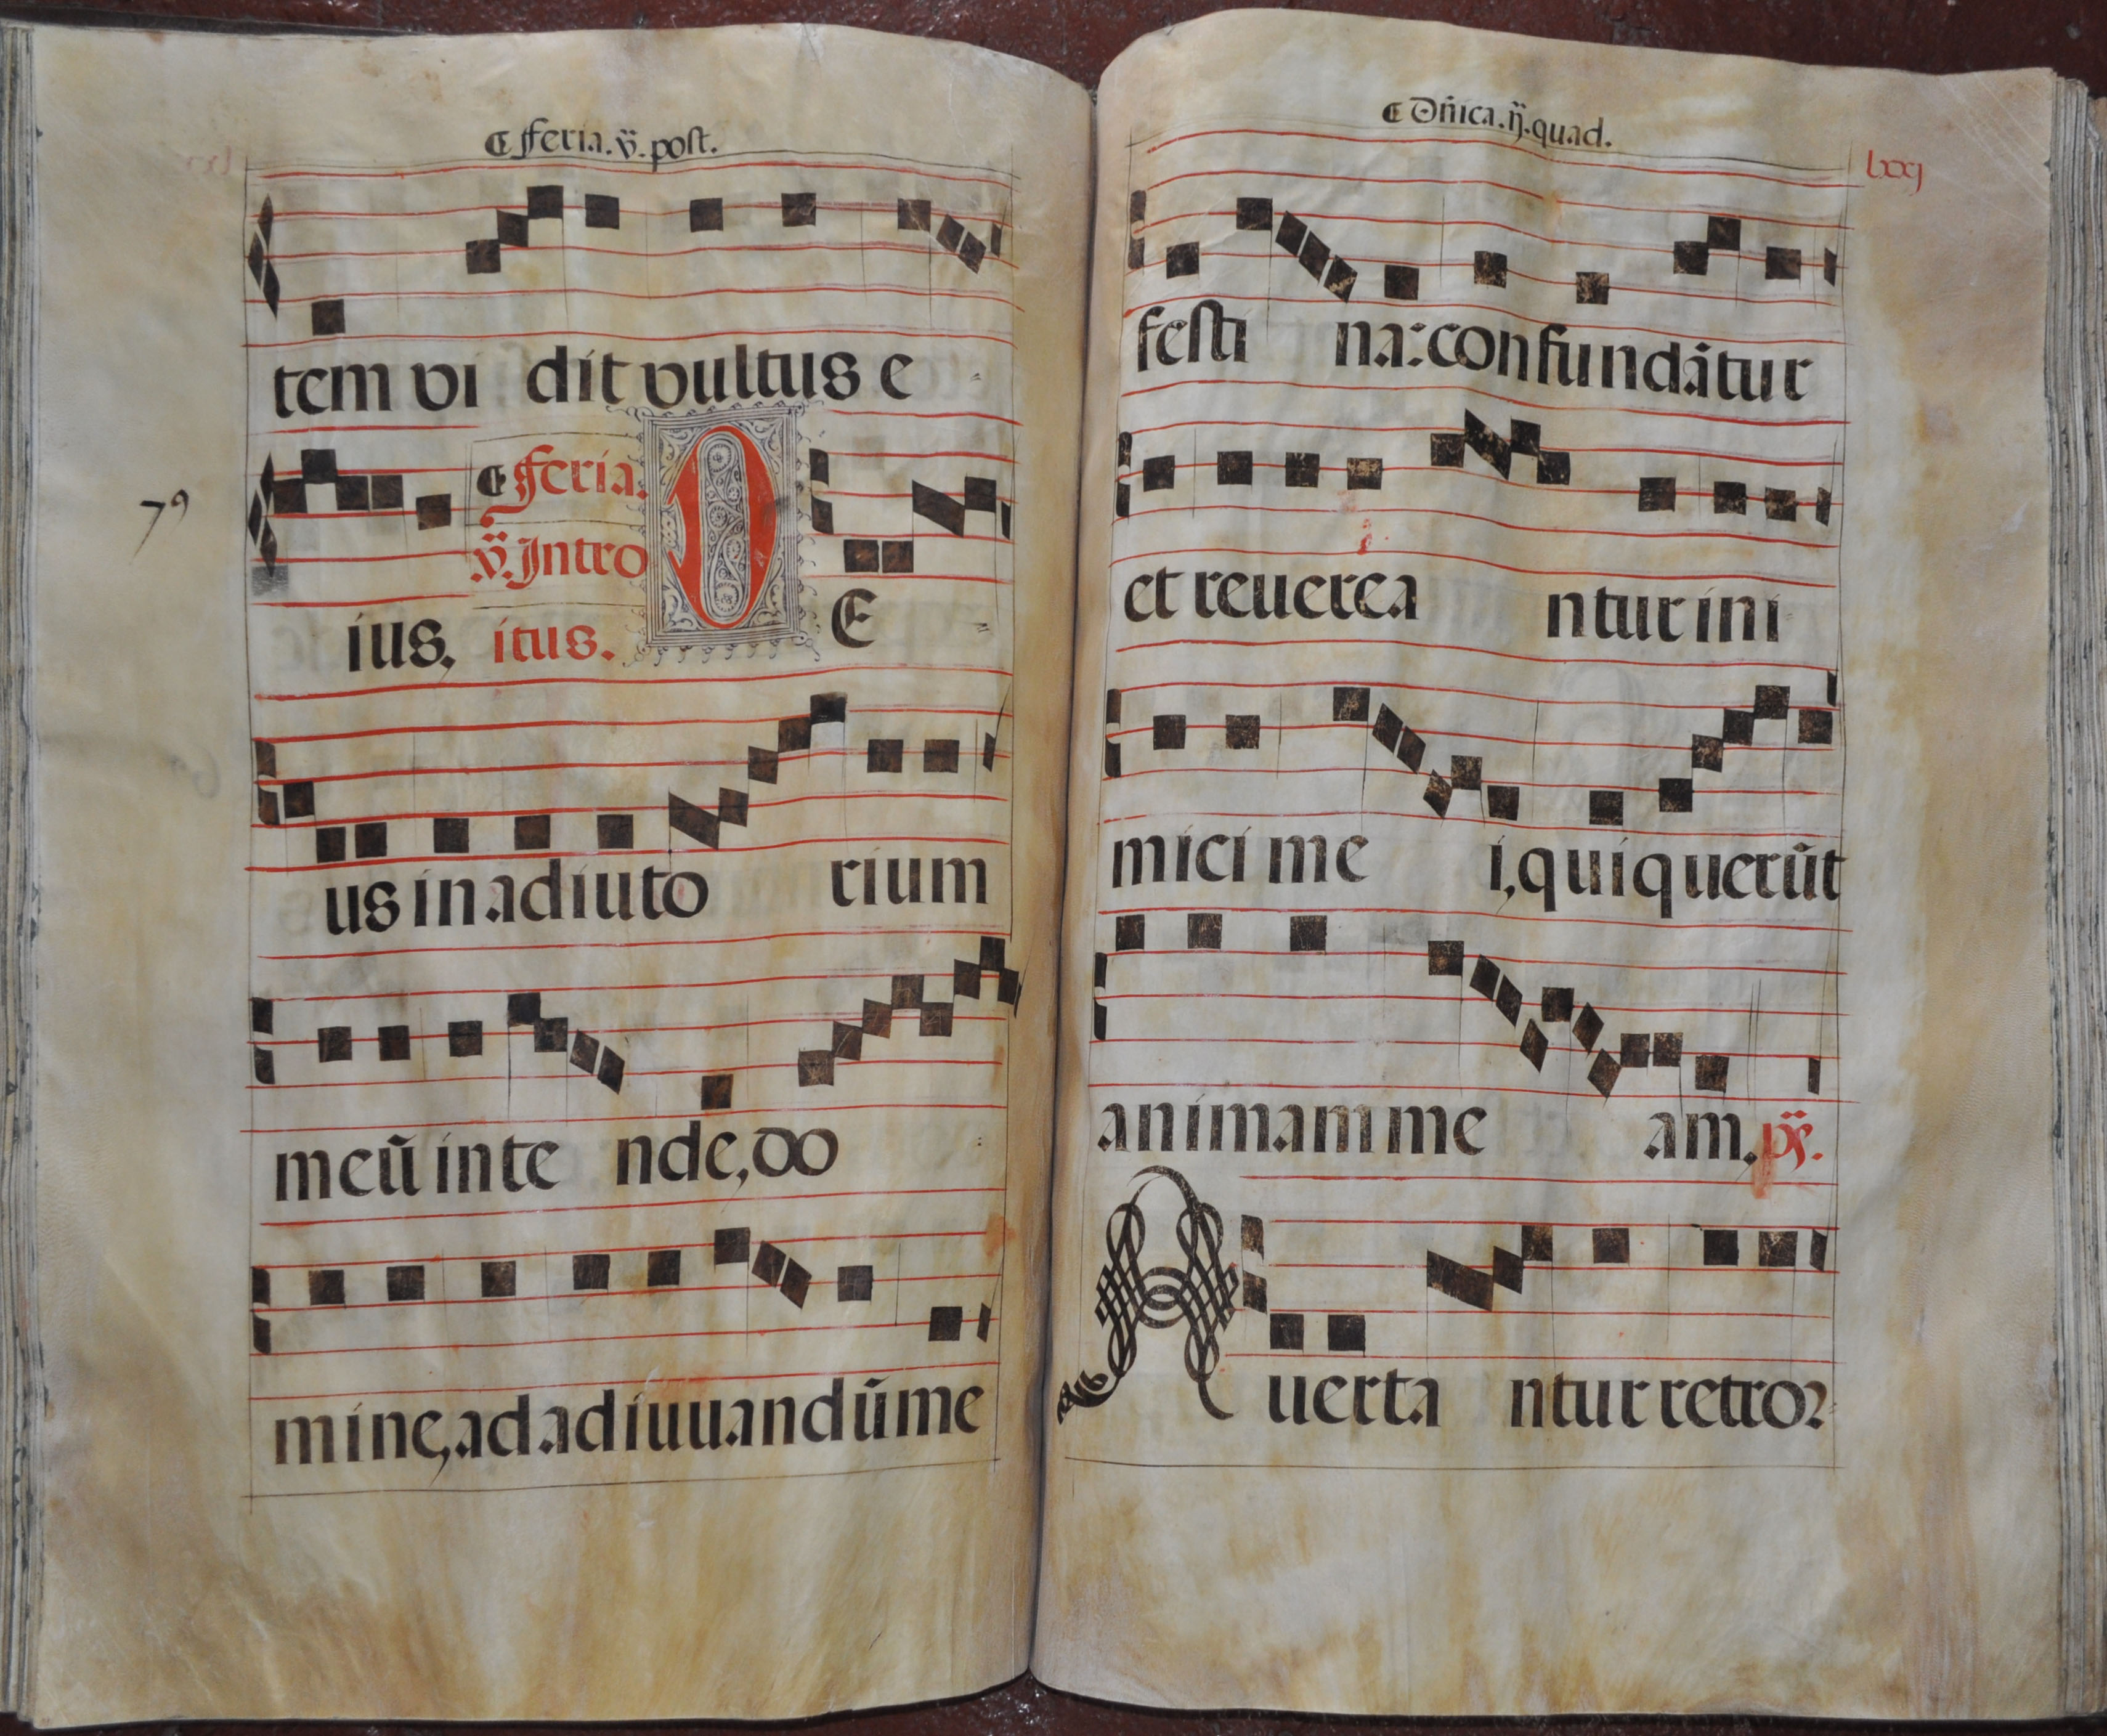 ¶ feria. v̈. post.
tem vi dit vultus e
¶ feria.
v̈. Intro
ius. itus. D E
79
us in adiuto rium
meū inte nde, do
mine, ad adiuuandū me
¶ Dn̄ica. ij. quad.
lxxj
festi na: confundātur
et reuerea ntur ini
mici me i, qui querūt
animam me am. ps̈.
Auerta ntur retroꝛ